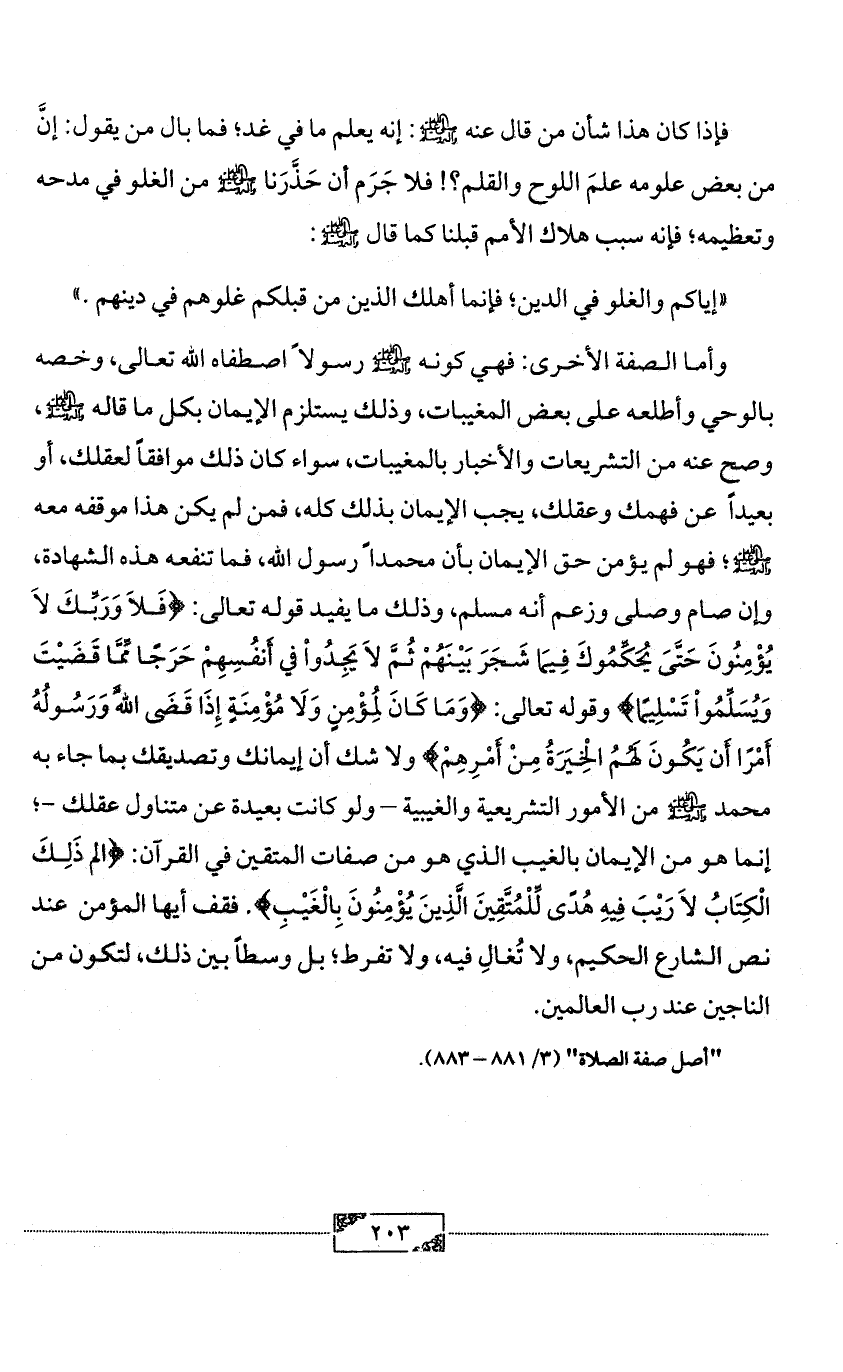 فإذا كان هذا شأن من قال عنه ﷺ: إنه يعلم ما في غد؛ فما بال من يقول: إنَّ
من بعض علومه علمَ اللوح والقلم؟! فلا جَرَم أن حَذَّرَنا ﷺ من الغلو في مدحه
وتعظيمه؛ فإنه سبب هلاك الأمم قبلنا كما قال ﷺ:
«إياكم والغلو في الدين؛ فإنما أهلك الذين من قبلكم غلوهم في دينهم .»
وأما الصفة الأخرى: فهي كونه ﷺ رسولاً اصطفاه الله تعالى، وخصه
بالوحي وأطلعه على بعض المغيبات، وذلك يستلزم الإيمان بكل ما قاله ﷺ،
وصح عنه من التشريعات والأخبار بالمغيبات، سواء كان ذلك موافقاً لعقلك، أو
بعيداً عن فهمك وعقلك، يجب الإيمان بذلك كله، فمن لم يكن هذا موقفه معه
ﷺ؛ فهو لم يؤمن حق الإيمان بأن محمداً رسول الله، فما تنفعه هذه الشهادة،
وإن صام وصلى وزعم أنه مسلم، وذلك ما يفيد قوله تعالى: ﴿فَلاَ وَرَبِّكَ لاَ
يُؤْمِنُونَ حَتَّىَ يُحَكِّمُوكَ فِيمَا شَجَرَ بَيْنَهُمْ ثُمَّ لاَ يَجِدُواْ فِي أَنفُسِهِمْ حَرَجًا مِّمَّا قَضَيْتَ
وَيُسَلِّمُواْ تَسْلِيمًا﴾ وقوله تعالى: ﴿وَمَا كَانَ لِمُؤْمِنٍ وَلَا مُؤْمِنَةٍ إِذَا قَضَى اللهُ وَرَسُولُهُ
أَمْرًا أَن يَكُونَ لَهُمُ الْخِيَرَةُ مِنْ أَمْرِهِمْ﴾ ولا شك أن إيمانك وتصديقك بما جاء به
محمد ﷺ من الأمور التشريعية والغيبية – ولو كانت بعيدة عن متناول عقلك –؛
إنما هو من الإيمان بالغيب الذي هو من صفات المتقين في القرآن: ﴿الم ذَلِكَ
الْكِتَابُ لاَ رَيْبَ فِيهِ هُدًى لِّلْمُتَّقِينَ الَّذِينَ يُؤْمِنُونَ بِالْغَيْبِ﴾. فقف أيها المؤمن عند
نص الشارع الحكيم، ولا تُغالِ فيه، ولا تفرط؛ بل وسطاً بين ذلك، لتكون من
الناجين عند رب العالمين.
"أصل صفة الصلاة" (٣/ ٨٨١ – ٨٨٣).
٢٠٣